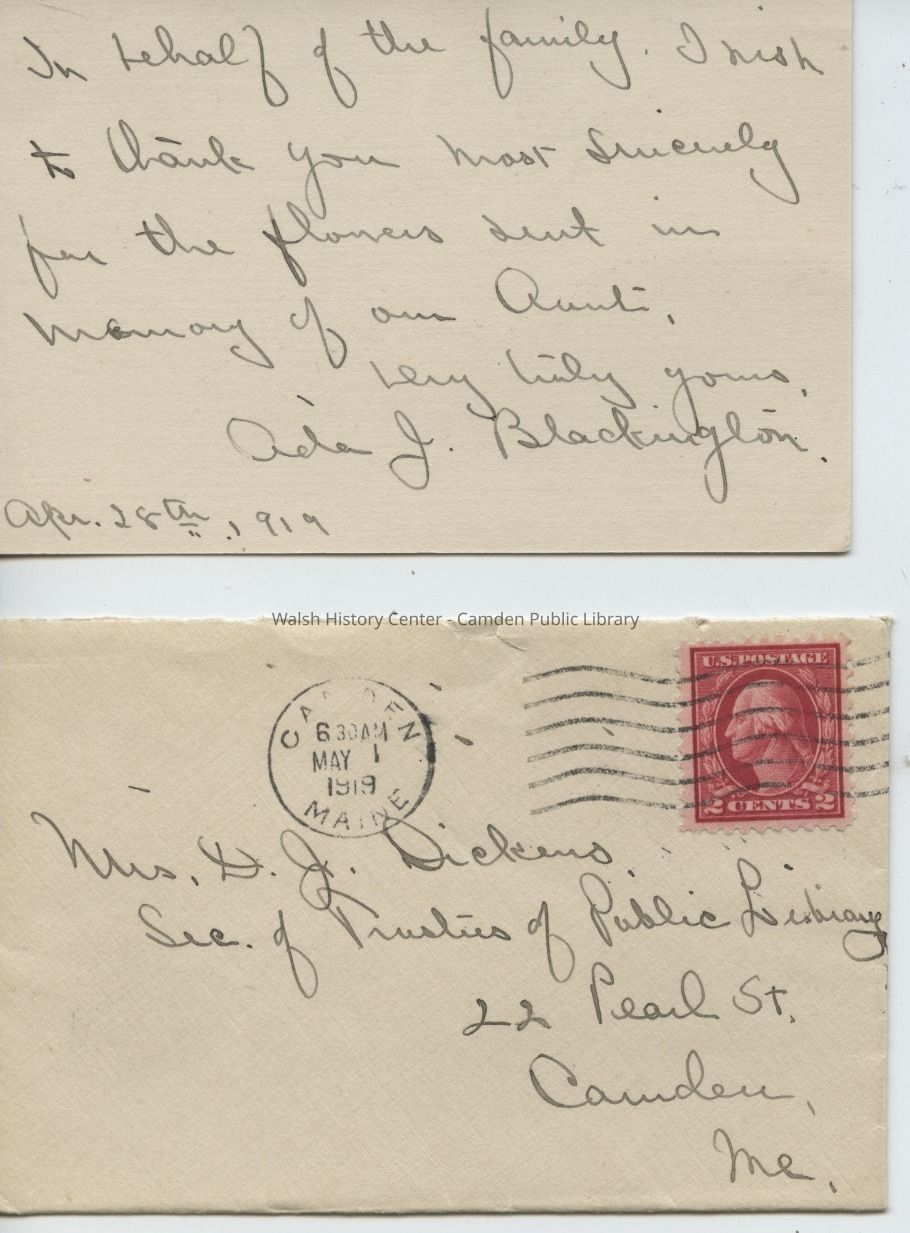 In behalf of the family. I wish
to thank you most sincerely
for the flowers sent in
memory of our Aunt,
Very truly yours,
Ada J. Blackington.
Apr. 28th, 1919
Walsh History Center - Camden Public Library
U.S. POSTAGE
CAMDEN
630AM
MAY 1
1919
MAINE
2 CENTS 2
Mrs. D. J. Dickens
Sec. of Trustees of Public Library
22 Pearl St.
Camden,
Me.